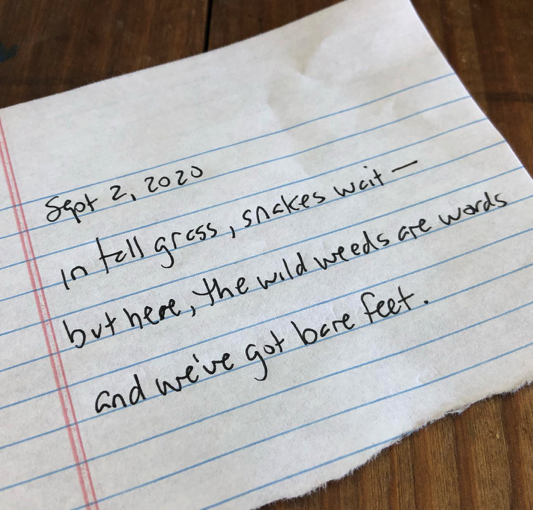 Sept 2, 2020
in tall grass, snakes wait —
but here, the wild weeds are words
and we've got bare feet.